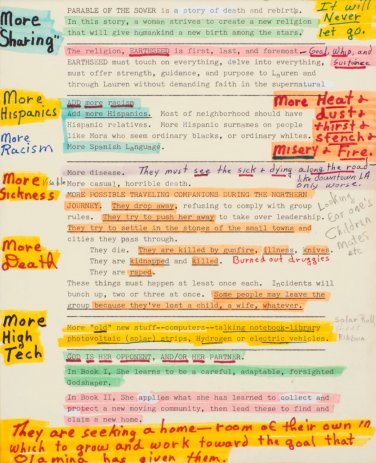 More Sharing"
PARABLE OF THE SOWER is a story of death and rebirth.
In this story, a woman strives to create a new religion
that will give humankind a new birth among the stars.
It will
Never
let go.
The religion, EARTHSEED is first, last, and foremost— God, Whip, and
EARTHSEED must touch on everything, delve into everything, Guidance
must offer strength, guidance, and purpose to Lauren and
through Lauren without demanding faith in the supernatural
More
Hispanics
More
Racism
ADD more racism
Add more Hispanics. Most of neighborhood should have
Hispanic relatives. More Hispanic surnames on people
like Mora who seem ordinary blacks, or ordinary whites.
More Spanish Language.
More Heat &
dust &
thirst &
stench &
Misery & Fire.
More
Sickness
More disease. They must see the sick & dying along the road
More casual, horrible death. like downtown LA
only worse.
MORE POSSIBLE TRAVELING COMPANIONS DURING THE NORTHERN
JOURNEY. They drop away, refusing to comply with group
rules. They try to push her away to take over leadership.
They try to settle in the stones of the small towns and
cities they pass through.
Looking
For one's
Children
Mates
etc
More
Death
They die. They are killed by gunfire, illness, knives.
They are kidnapped and killed. Burned out druggies
They are raped.
These things must happen at least once each. Incidents will
bunch up, two or three at once. Some people may leave the
group because they've lost a child, a wife, whatever.
More
High
Tech
More "old" new stuff--computers--talking notebook-library
photovoltaic (solar) strips, Hydrogen or electric vehicles.
Solar Roll
Ribbon
GOD IS HER OPPONENT, AND/OR HER PARTNER.
In Book I, She learns to be a careful, adaptable, forsighted
Godshaper.
In Book II, She applies what she has learned to collect and
protect a new moving community, then lead these to find and
claim a new home.
They are seeking a home—room of their own in
which to grow and work toward the goal that
Olamina has given them.